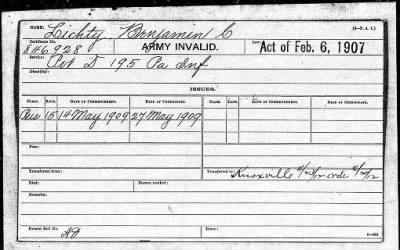 NAME: Lichty, Benjamin C (3—R. A. I.)
Certificate No. 846928 ARMY INVALID. Law: Act of Feb. 6, 1907
Service: Pvt D 195 Pa Inf
Disability:
ISSUES.
CLASS. RATE. DATE OF COMMENCEMENT. DATE OF CERTIFICATE. CLASS. RATE. DATE OF COMMENCEMENT. DATE OF CERTIFICATE.
15 14 May 1909 27 May 1909
Fees:
Transferred from: Transferred to: Knoxville
Died: Reissued:
Former Roll No.